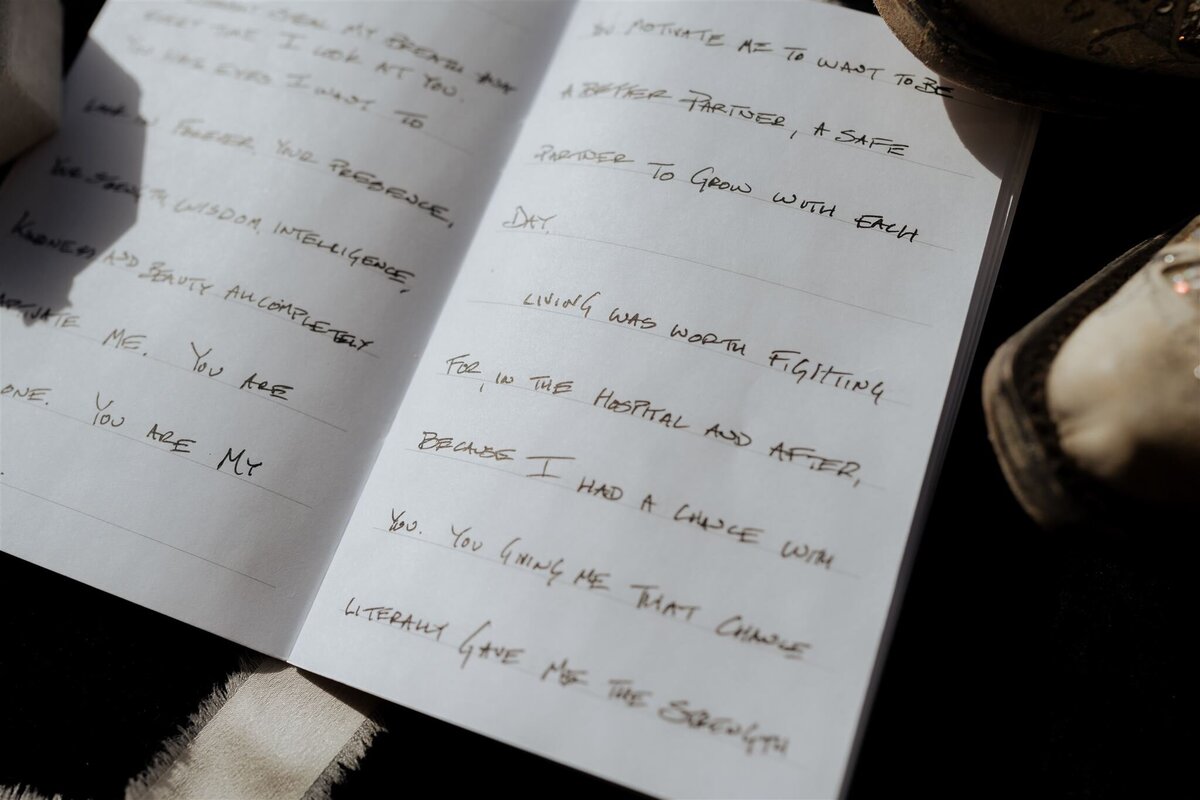 STEAL MY BREATH AWAY
EVERY TIME I LOOK AT YOU.
YOU HAVE EYES I WANT TO
LOOK IN FOREVER. YOUR PRESENCE,
YOUR STRENGTH, WISDOM, INTELLIGENCE,
KINDNESS AND BEAUTY ALL COMPLETELY
ME. YOU ARE
ONE. YOU ARE MY
YOU MOTIVATE ME TO WANT TO BE
A BETTER PARTNER, A SAFE
PARTNER TO GROW WITH EACH
DAY.
LIVING WAS WORTH FIGHTING
FOR, IN THE HOSPITAL AND AFTER,
BECAUSE I HAD A CHANCE WITH
YOU. YOU GIVING ME THAT CHANCE
LITERALLY GAVE ME THE STRENGTH